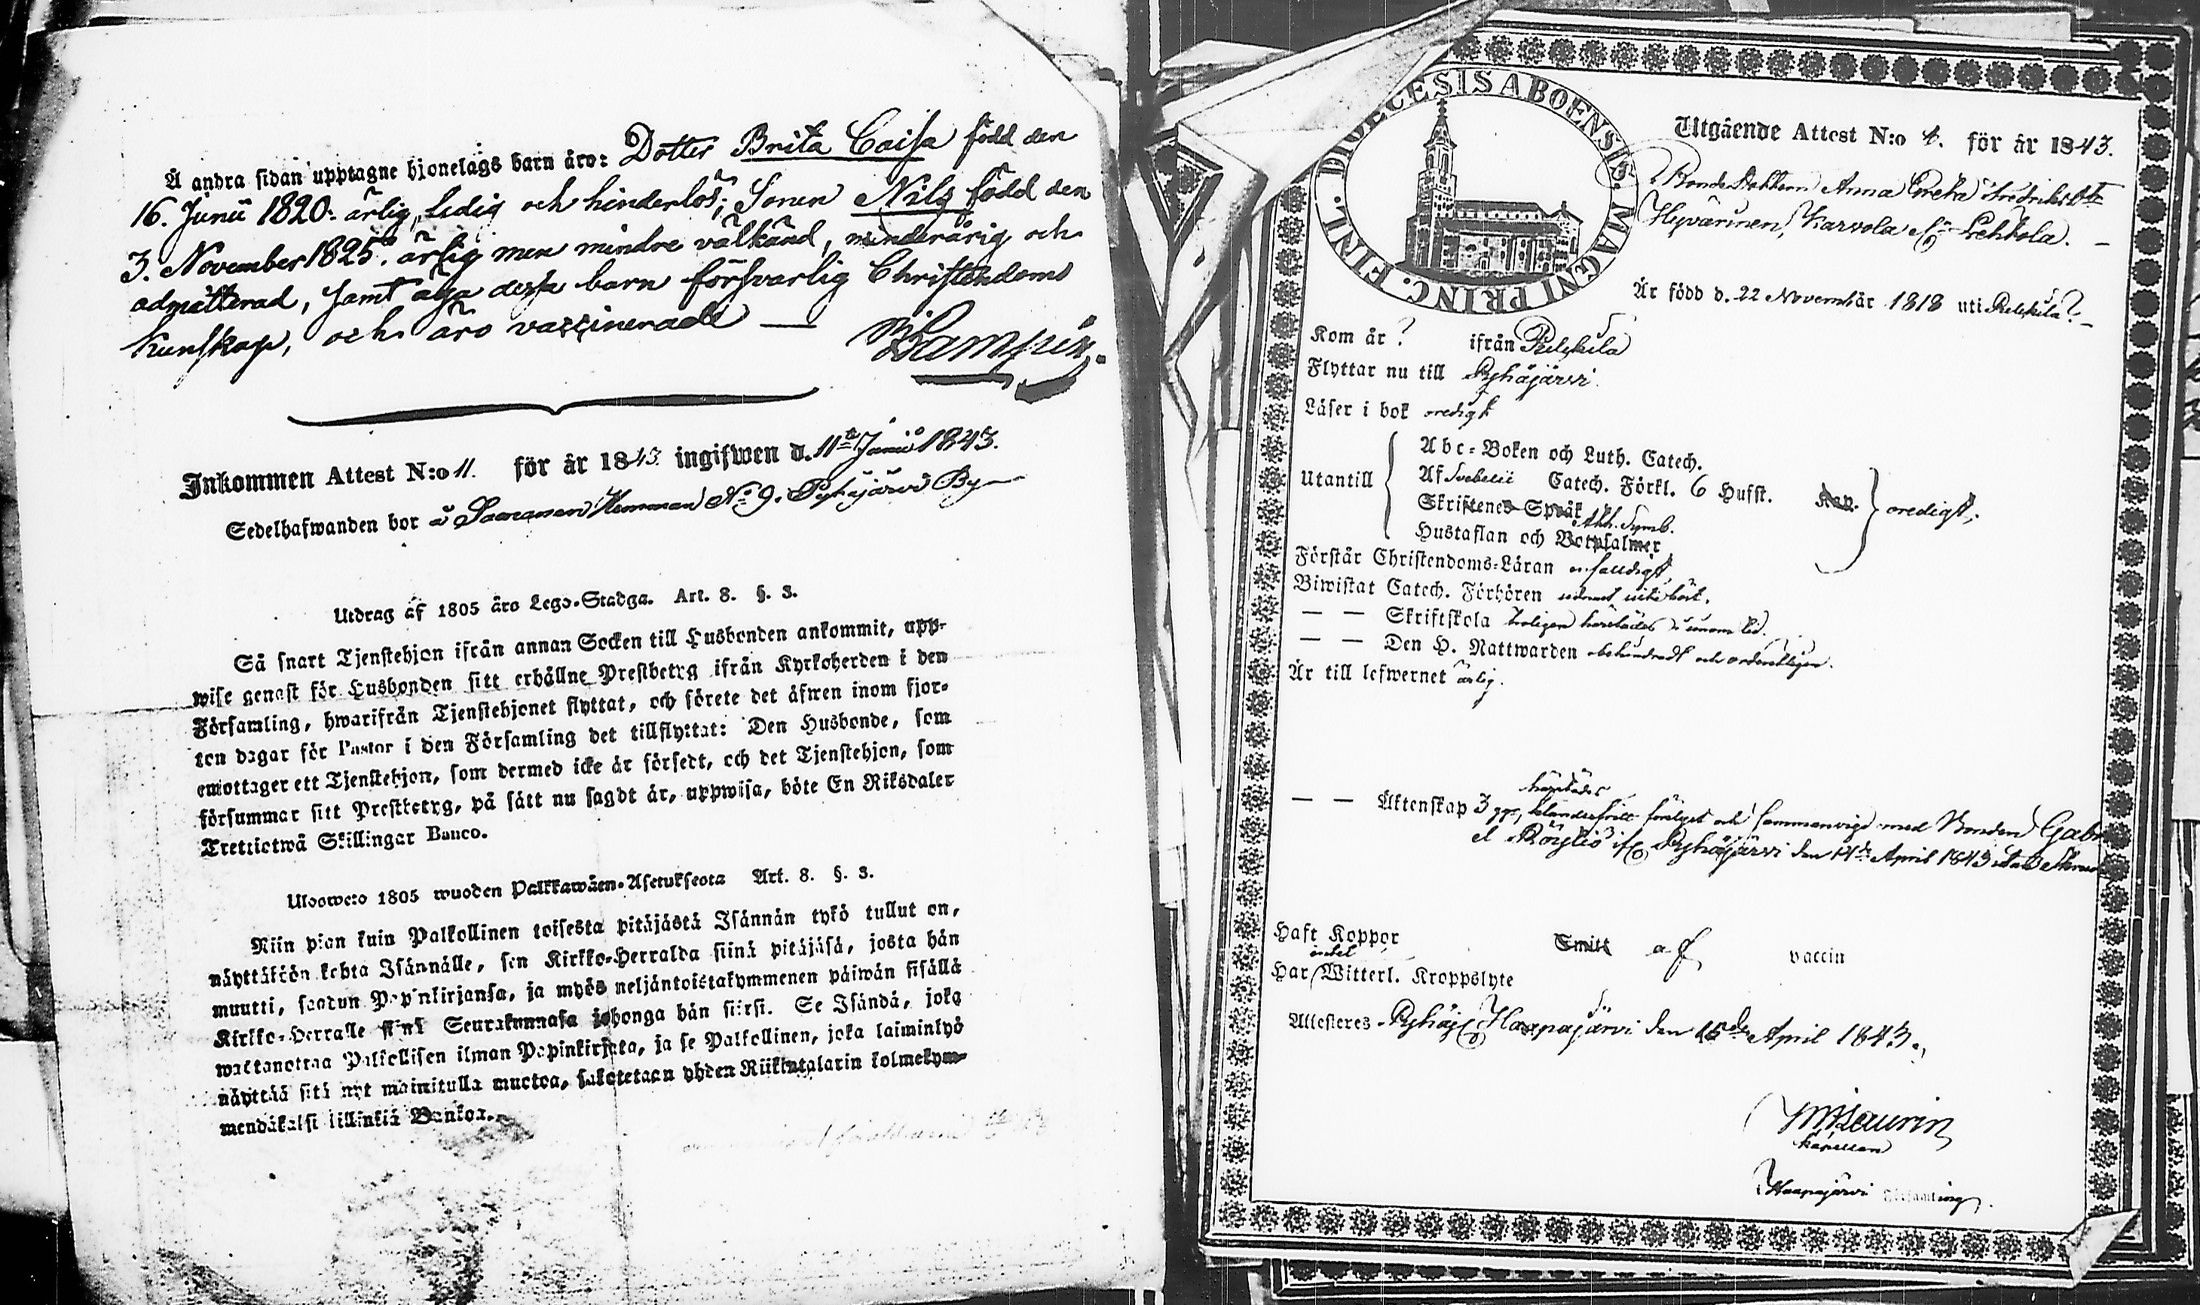 Å andra sidan upptagne hjonelags barn äro: Dotter Brita Caisa född den
16. Junii 1820. ärlig, ledig och hinderlös; Sonen Nils född den
3. November 1825. ärlig men mindre välkänd, minderårig och
admitterad, samt äga dessa barn försvarlig Christendoms
kunskap, och äro vaccinerade —
Inkommen Attest N:o 11. för år 1843. ingifwen d. 11te Junii 1843.
Sedelhafwanden bor å Saaranen Hemman No 9. Pyhäjärvi By
Utdrag af 1805 års Lego-Stadga. Art. 8. §. 3.
Så snart Tjenstehjon ifrån annan Socken till Husbonden ankommit, upp-
wise genast för Husbonden sitt erhållne Prestbetyg ifrån Kyrkoherden i den
Församling, hwarifrån Tjenstehjonet flyttat, och förete det äfwen inom fjor-
ton dagar för Pastor i den Församling det tillflyttat: Den Husbonde, som
emottager ett Tjenstehjon, som dermed icke är försedt, och det Tjenstehjon, som
försummar sitt Prestbetyg, på sätt nu sagdt är, uppwisa, böte En Riksdaler
Trettiotwå Skillingar Banco.
Ulosweto 1805 wuoden Palkkawäen-Asetuksesta Art. 8. §. 3.
Niin pian kuin Palkollinen toisesta pitäjästä Isännän tykö tullut on,
näyttäköön kohta Isännälle, sen Kirkko-Herralda siinä pitäjäsä, josta hän
muutti, saadun Papinkirjansa, ja myös neljäntoistakymmenen päiwän sisällä
Kirkko-Herralle siinä Seurakunnasa johonga hän siirsi. Se Isändä, joka
wastanottaa Palkollisen ilman Papinkirjata, ja se Palkollinen, joka laiminlyö
näyttää sitä nyt mainitulla muotoa, sakotetaan yhden Riikintalarin kolmekym-
mendäkaksi killinkiä Bankoa.
DIOECESIS ABOENSIS. MAGNI PRINC. FINL.
Utgående Attest N:o 4. för år 1843.
Bonde Dottern Anna Greta Fredriksdtr
Hyvärinen, Karvola
Är född d. 22 November 1818 uti Pielskila?
Kom år ? ifrån Pielskila
Flyttar nu till Pyhäjärvi.
Läser i bok oredigt
Abc-Boken och Luth. Catech.
Utantill Af Svebelii Catech. Förkl. 6 Hufst. Kap. oredigt,
Skriftenes Språk Ath. Symb.
Hustaflan och Botpsalmer
Förstår Christendoms-Läran enfaldigt,
Biwistat Catech. Förhören
— — Skriftskola
— — Den H. Nattwarden behindradt och ordentligen.
Är till lefwernet ärlig.
härstädes
— — Äktenskap 3 och sammanvigd med Bonden Gabri
el Röyliö ifr. Pyhäjärvi den 14de April 1843
Haft Koppor Smitt af vaccin
intet
Har Witterl. Kroppslyte
Attesteres Pyhäj. Haapajärvi den 15de April 1843.
Kapellan
Haapajärvi Församling.